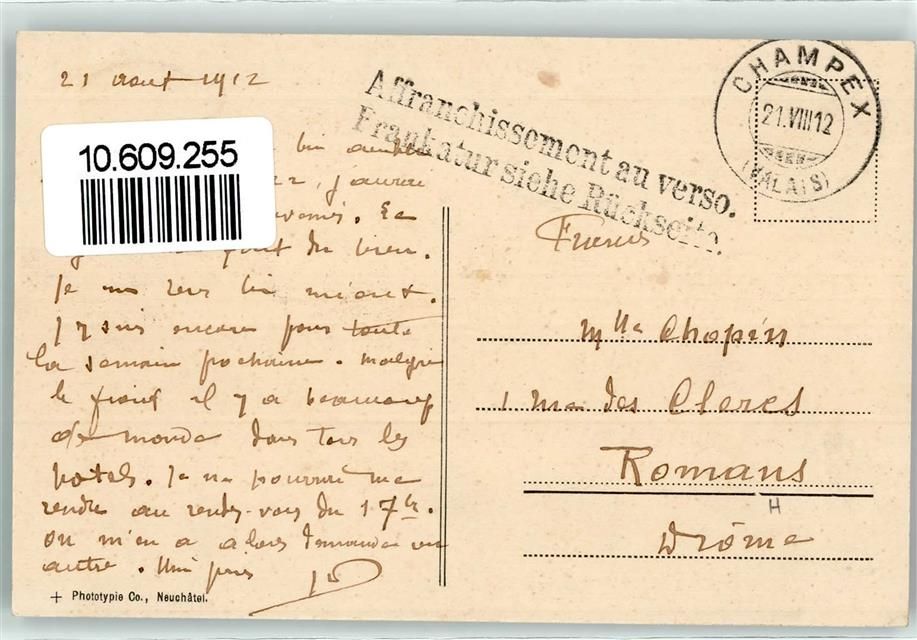 21 aout 1912
10.609.255
bien
, j'aurai
du bien.
Je me sens bien mieux.
J'y suis encore pour toute
la semaine prochaine. Malgré
le froid il y a beaucoup
de monde dans tous les
hotels. Je ne pourrai me
rendre au rendez-vous du 17
On m'en a alors demandé un
autre.
Affranchissement au verso.
Frankatur siehe Rückseite.
CHAMPEX
21.VIII12
(VALAIS)
Mlle Chopin
1 rue des Clercs
Romans
H
Drôme
Phototypie Co., Neuchâtel.